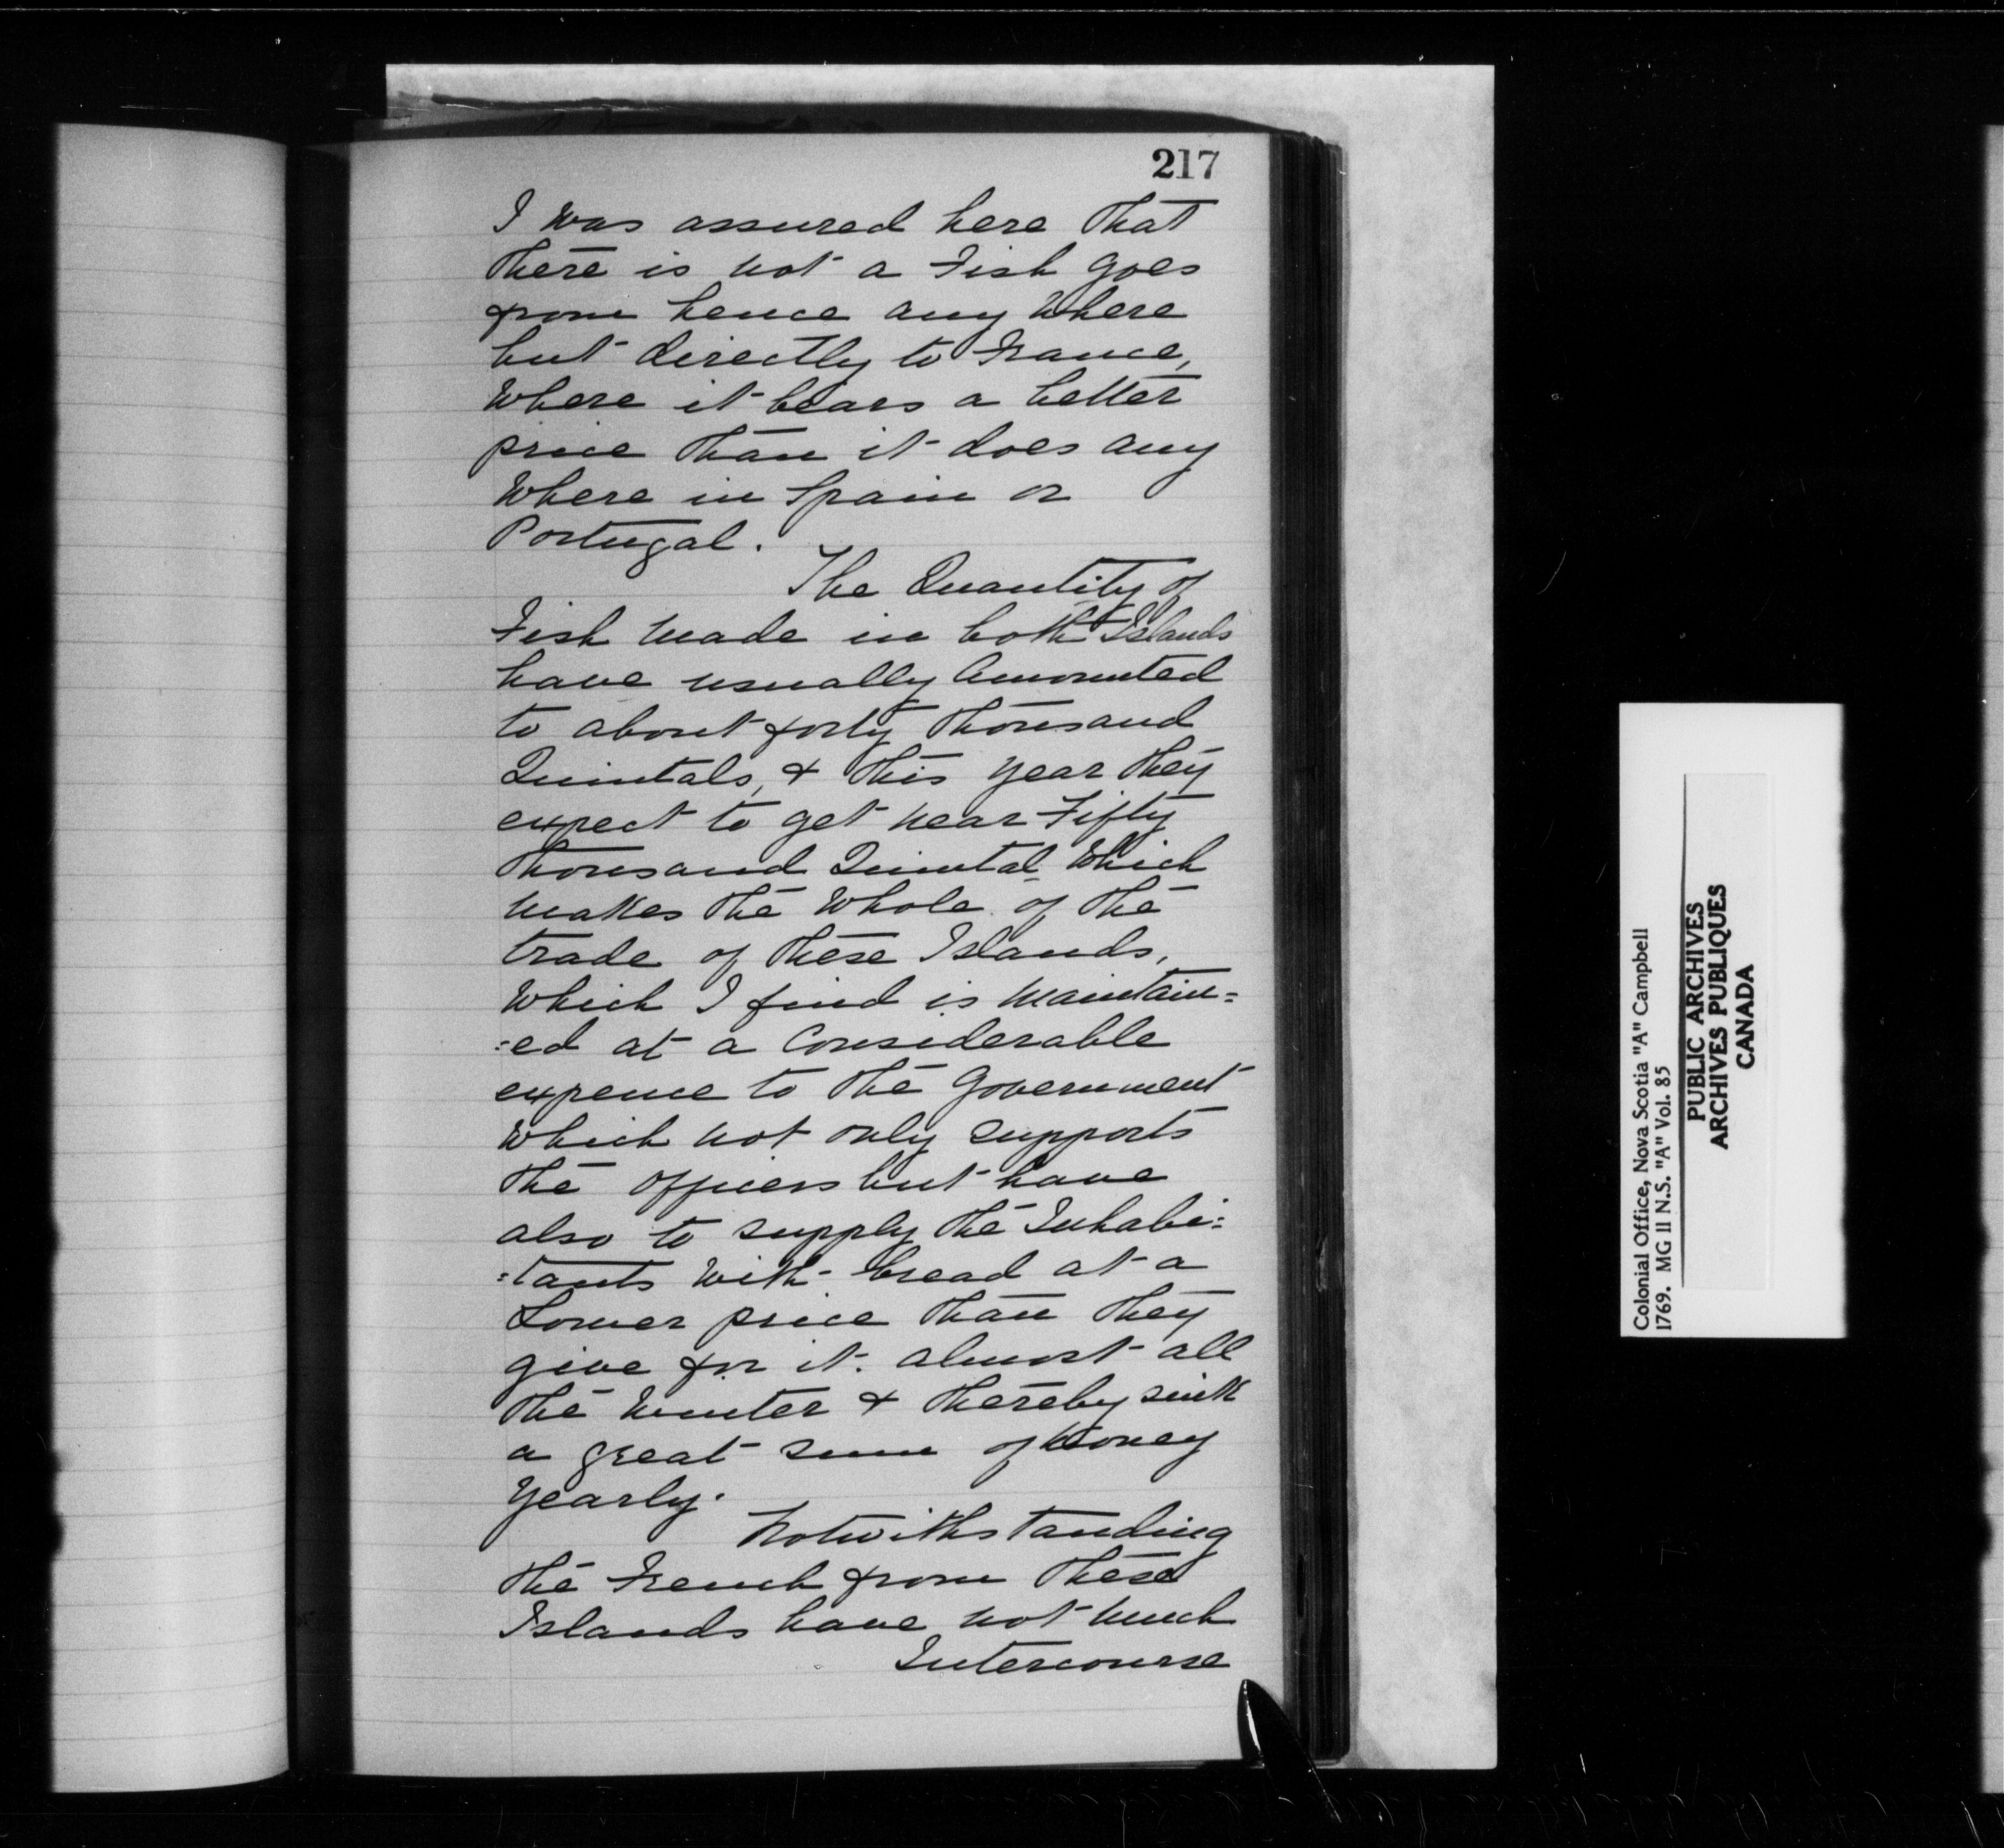 217
I was assured here that
there is not a Fish goes
from hence any where
but directly to France,
Where it bears a better
price than it does any
Where in Spain or
Portugal.
The Quantity of
Fish made in both Islands
have usually amounted
to about forty thousand
Quintals, & this year they
expect to get near Fifty
thousand Quintal which
makes the Whole of the
trade of these Islands,
Which I find is maintain=
=ed at a Considerable
expence to the Government
which not only supports
the officers but have
also to supply the Inhabi=
=tants with bread at a
Lower price than they
give for it. almost all
the Winter & thereby sink
a great sum of money
Yearly.
Notwithstanding
the French from these
Islands have not much
Intercourse
Colonial Office, Nova Scotia "A" Campbell
1769. MG II N.S. "A" Vol. 85
PUBLIC ARCHIVES
ARCHIVES PUBLIQUES
CANADA